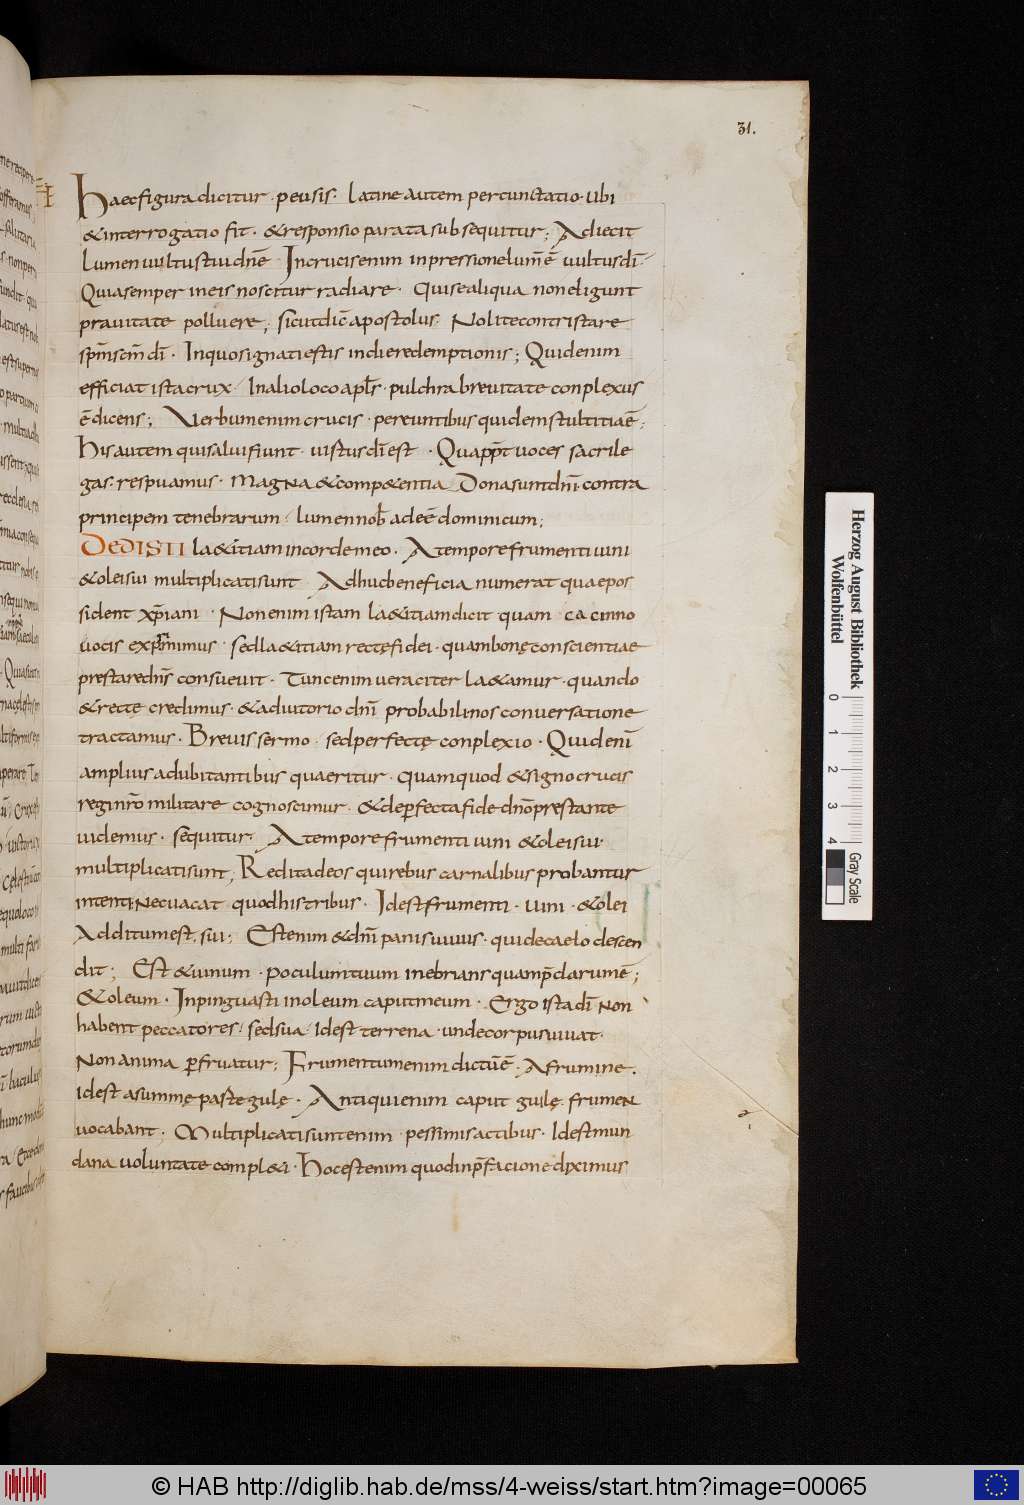 31.
Haec figura dicitur · peusis · latine autem percunctatio · ubi
& interrogatio fit · & responsio parata subsequitur; Adiecit
lumen uultus tui dnē In crucis enim inpressione lum̄ ē uultus dī ·
Qui a semper in eis noscitur radiare · Qui se aliqua non eligunt
prauitate polluere; sicut dic̄ apostolus · Nolite contristare
spm̄ scm̄ dī · In quo signati estis in die redemptionis; Quid enim
efficiat ista crux · In alio loco apls̄ · pulchra breuitate conplexus
ē dicens; Verbum enim crucis · pereuntibus quidem stultitia ē;
His autem qui salui fiunt · uirtus dī est · Qua ppt̄ uoces sacrile
gas respuamus · Magna & comp&entia Dona sunt dnī · contra
principem tenebrarum / lumen nob̄ adeē dominicum;
DEDISTI la&itiam in corde meo · A tempore frumenti uini
& olei sui multiplicati sunt Adhuc beneficia numerat quae pos
sident xp̄iani · Non enim istam la&itiam dicit quam cacinno
uocis exprimimus · sed la&itiam recte fidei · quam bonę conscientiae
prestare dns̄ consueuit · Tunc enim ueraciter la&amur · quando
& rectę credimus · & adiutorio dnī probabili nos conuersatione
tractamus · Breuis sermo · sed perfectę conplexio · Quid enī
amplius a dubitantibus quaeritur · quam quod & signo crucis
regi nr̄o militare cognoscimur · & de perfecta fide dnō prestante
uidemus · sequitur · A tempore frumenti uini & olei sui ·
multiplicati sunt; Redit ad eos qui rebus carnalibus probantur
intenti Nec uacat quod his tribus · Id est frumenti · uini · & olei
Additum est · sui; Est enim & dnī panis uiuus · qui de caelo descen
dit; Est & uinum · poculum tuum inebrians quam p̄clarum ē;
& oleum · Inpinguasti in oleum caput meum · Ergo ista dī Non
habent peccatores / sed sua / Id est terrena · unde corpus uiuat ·
Non anima p̄fruatur; Frumentum enim dictū ē · A frumine ·
Id est a summę parte gulę · Antiqui enim caput gulę frumen
uocabant; Multiplicati sunt enim · pessimis actibus · Id est mun
dana uoluntate compl&i · Hoc est enim quod in p̄facione diximus
Herzog August Bibliothek
Wolfenbüttel
0 1 2 3 4
Gray Scale
© HAB http://diglib.hab.de/mss/4-weiss/start.htm?image=00065